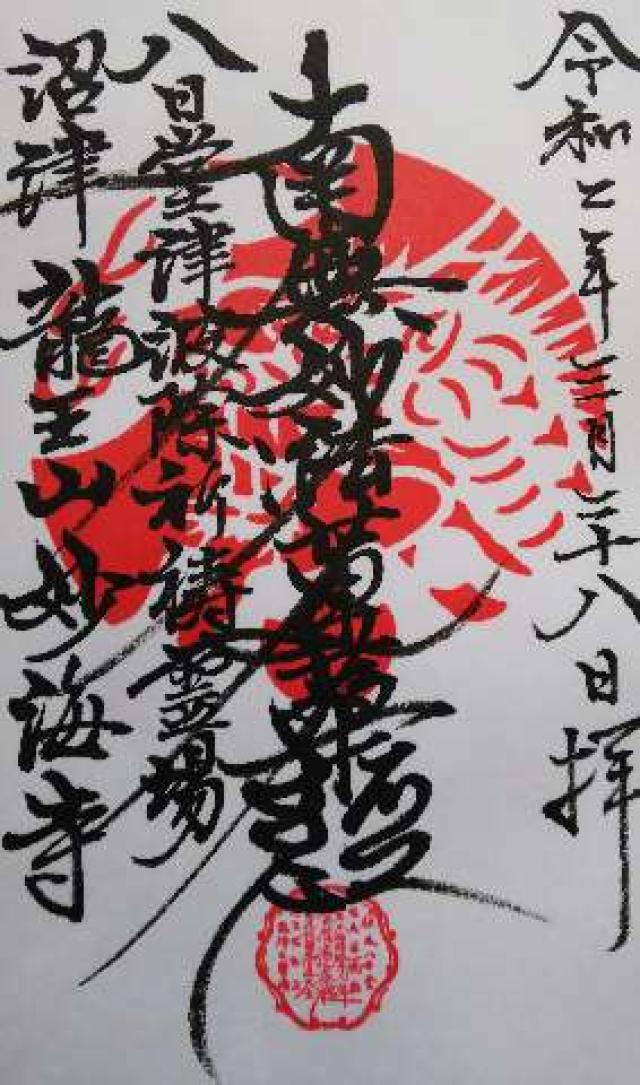 令和二年三月二十八日拝
南無妙法蓮華経
八日堂津波除祈祷霊場
沼津 龍王山妙海寺